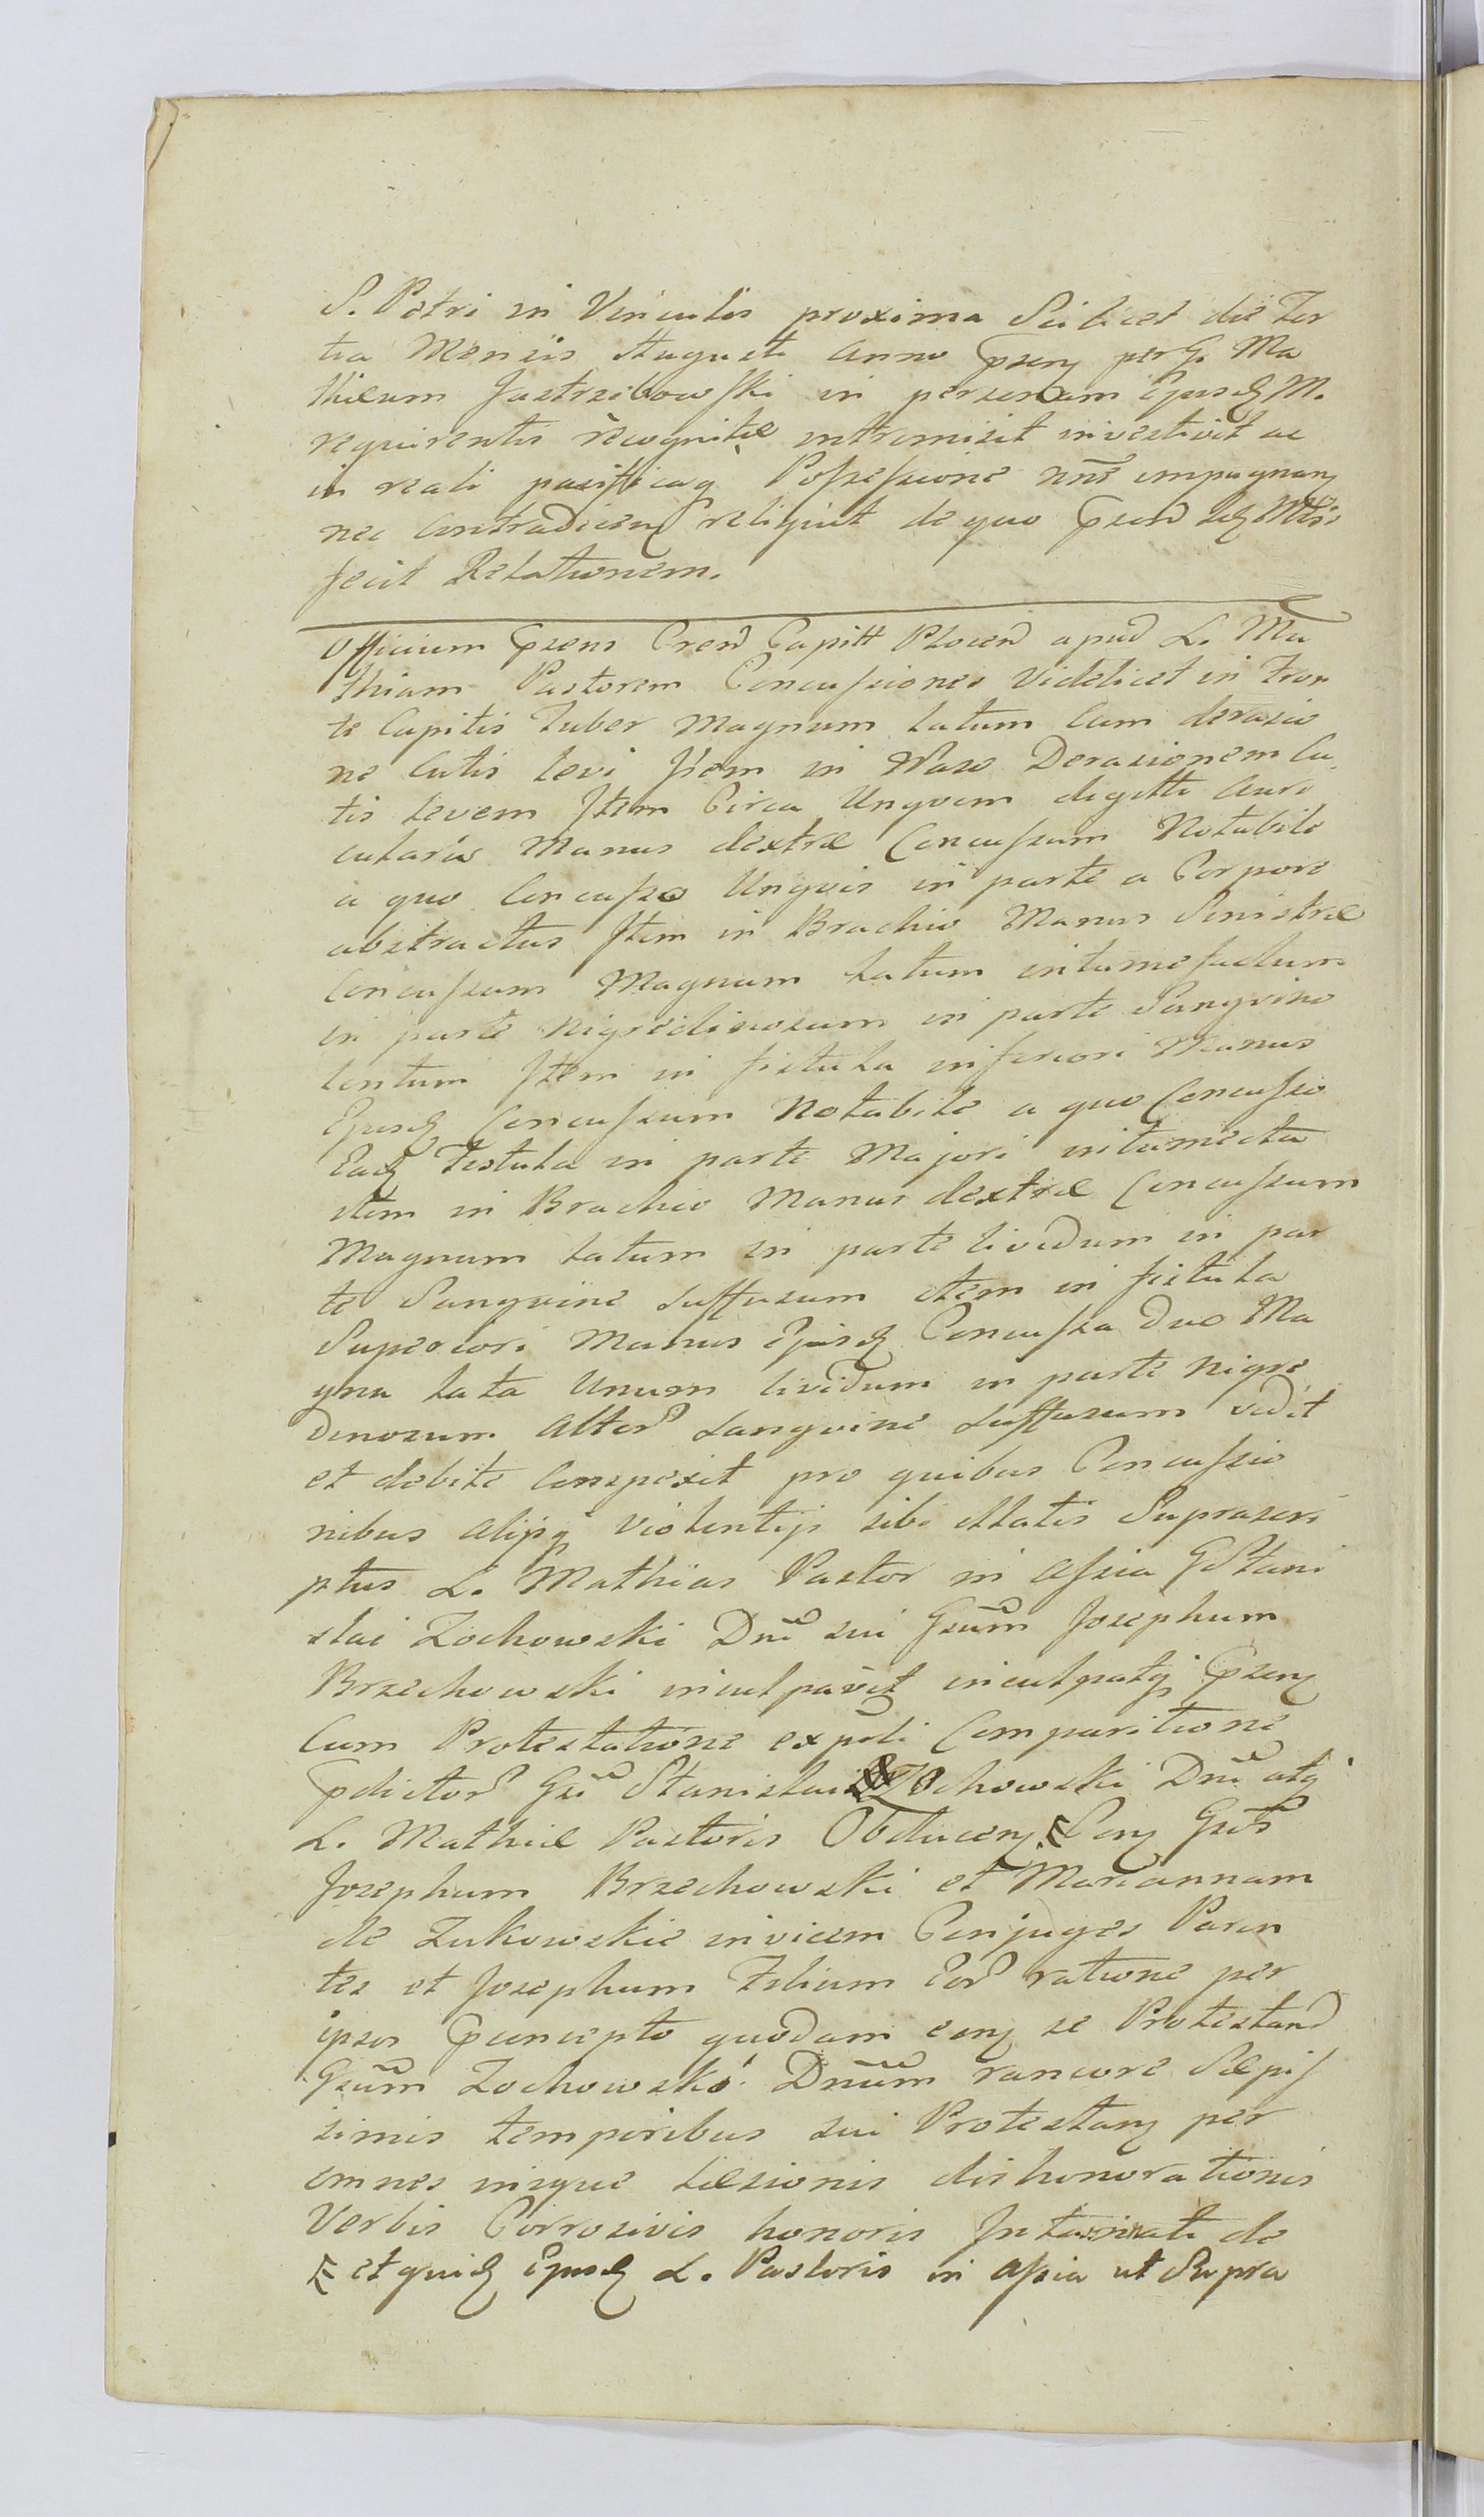 S. Petri in Vinculis proxima Scilicet die Ter
tia Mensis Augusti Anno Pseng per G. Ma
thæum Jastrzebowski in personam Ejusdq M.
requirentis recognitæ intromisit investivit ac
in reali pacificaq Possessione nñe impugnang
nec Contradiceng reliquit de quo Psend
fecit Relationem.
Officium Psens Crend Capitt Plocen apud L. Ma
thiam Pastorem Concussiones Videlicet in Fron
te Capitis Tuber Magnum latum Cum derasio
ne Cutis levi Item in Naso Derasionem Cu
tis levem Item Circa Ungvem digitti Auri
cularis Manus dextræ Concussum Notabile
a quo Concusso Ungvis in parte a Corpore
abstractus Item in Brachio Manus Sinistræ
Concussum Magnum latum intumefactum
in parte nigredinosum in parte Sangvino
lentum Item in fistula inferiori Manus
Ejusdq Concussum Notabile a quo Concusso
Eadq Fistula in parte Majori intumecta
item in Brachio Manus dextræ Concussum
Magnum latum in parte lividum in par
te Sangvine suffusum item in fistula
Superiori Manus Ejusdq Concussa Duo Ma
gna lata Unum lividum in parte nigre
dinosum Alter Sangvine suffusum vidit
et debite Conspexit pro quibus Concussio
nibus Alijsq violentijs sibi illatis Suprascri
ptus L. Mathias Pastor in Assia G Stani
slai Zochowski Dni sui Gsum Josephum
Brzechowski inculpavit inculpatq Pseng
Cum Protestatione expdi Comparitione
Pdictor Gsi Stanislai Zochowski Dni atq
L. Mathiæ Pastoris Obduceng Cong Gsos
Josephum Brzechowski et Mariannam
de Zukowskie invicem Conjuges Paren
tes et Josephum Filium Eor ratione per
ipsos Pconcepto quodam cong se Protestand
Gsum Zochowski Dnum rancore Sæpis
simis temporibus sui Protestang per
omnes læsionis dishonorationis
Verbis Corrosivis honoris de
et quidq Ejusdq L. Pastoris in Assia ut Supra